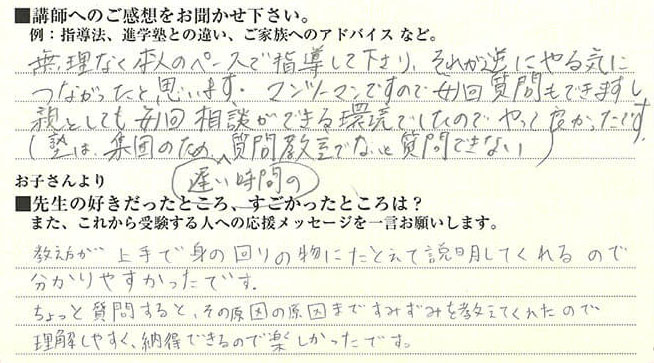 ■講師へのご感想をお聞かせ下さい。
例：指導法、進学塾との違い、ご家族へのアドバイス など。
無理なく本人のペースで指導して下さり、それが逆にやる気に
つながったと思います。マンツーマンですので毎回質問もできますし
親としても毎回相談ができる環境でしたのでやって良かったです
(塾は、集団のため、質問教室でないと質問できない)
遅い時間の
お子さんより
■先生の好きだったところ、すごかったところは？
また、これから受験する人への応援メッセージを一言お願いします。
教え方が上手で身の回りの物にたとえて説明してくれるので
分かりやすかったです。
ちょっと質問すると、その原因の原因まですみずみを教えてくれたので
理解しやすく、納得できるので楽しかったです。